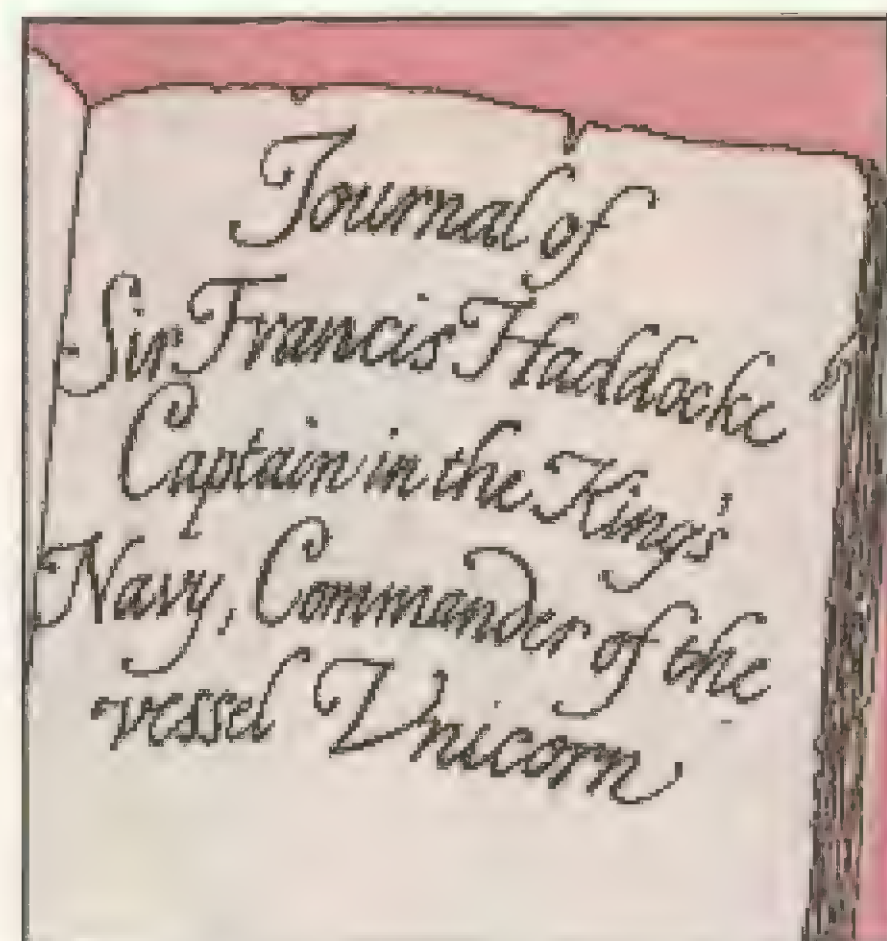 Journal of
Sir Francis Haddocke
Captain in the King's
Navy, Commander of the
vessel Vnicorn